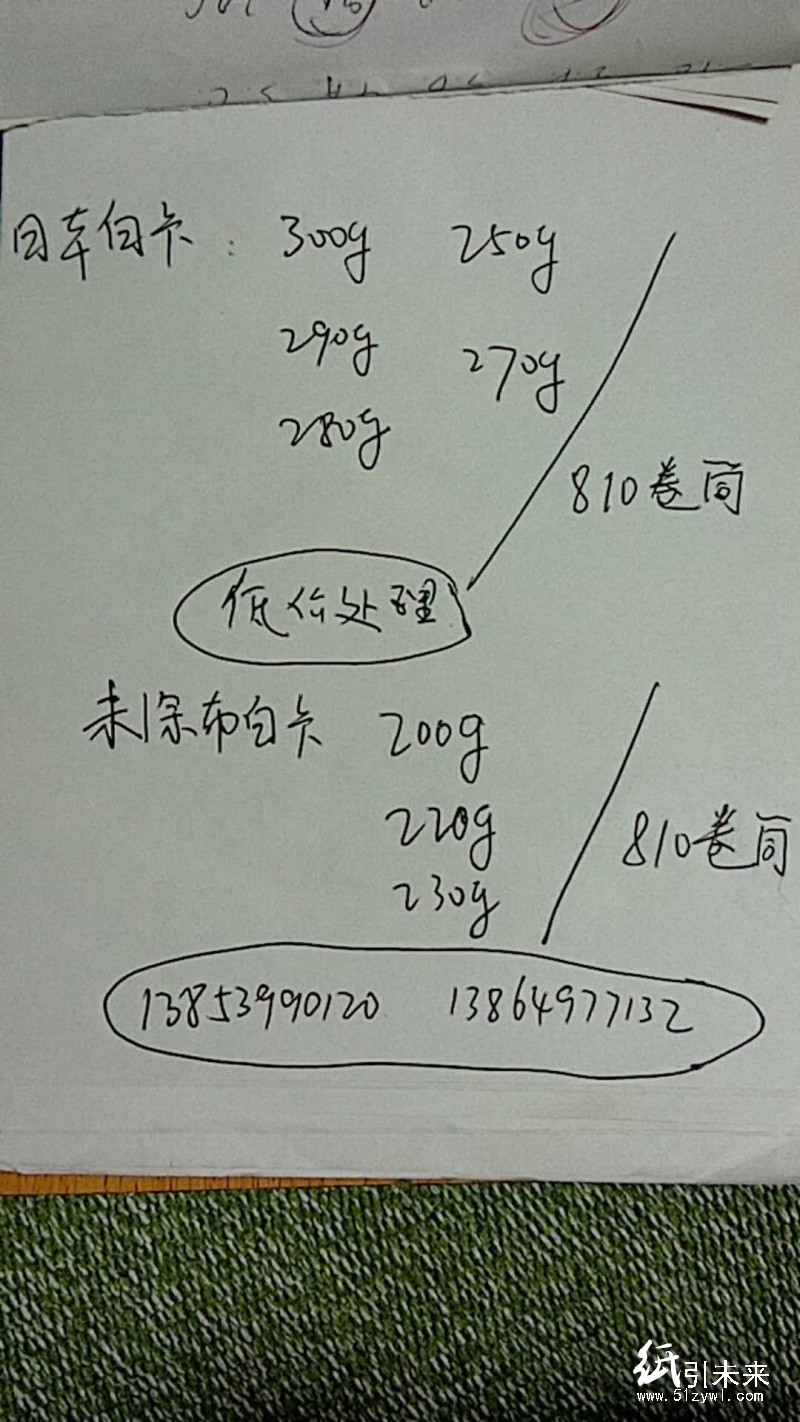 日本白卡： 300g 250g
290g 270g
280g
810卷筒
低价处理
未涂布白卡 200g
220g
810卷筒
230g
13853990120 13864977132
纸引未来
www.51zywl.com